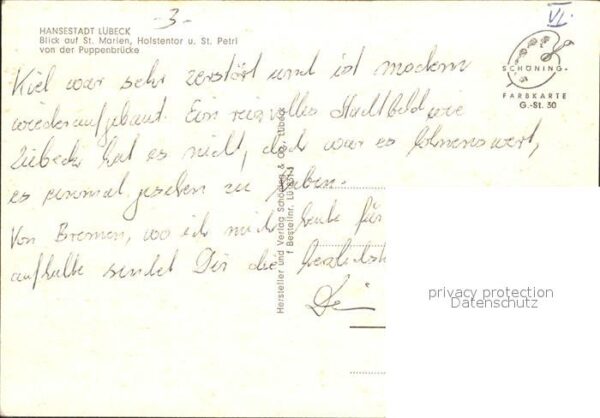 - 3 -
VI.
HANSESTADT LÜBECK
Blick auf St. Marien, Holstentor u. St. Petri
von der Puppenbrücke
SCHÖNING-
FARBKARTE
G.-St. 30
Kiel war sehr zerstört und ist modern
wiederaufgebaut. Ein reizvolles Stadtbild wie
Lübeck hat es nicht, doch war es lohnenswert,
es einmal gesehen zu haben.
Von Bremen, wo ich mich heute für
aufhalte sendet Dir die
Hersteller und Verlag Schöning & Co., Lübeck
Bestellnr.
privacy protection
Datenschutz